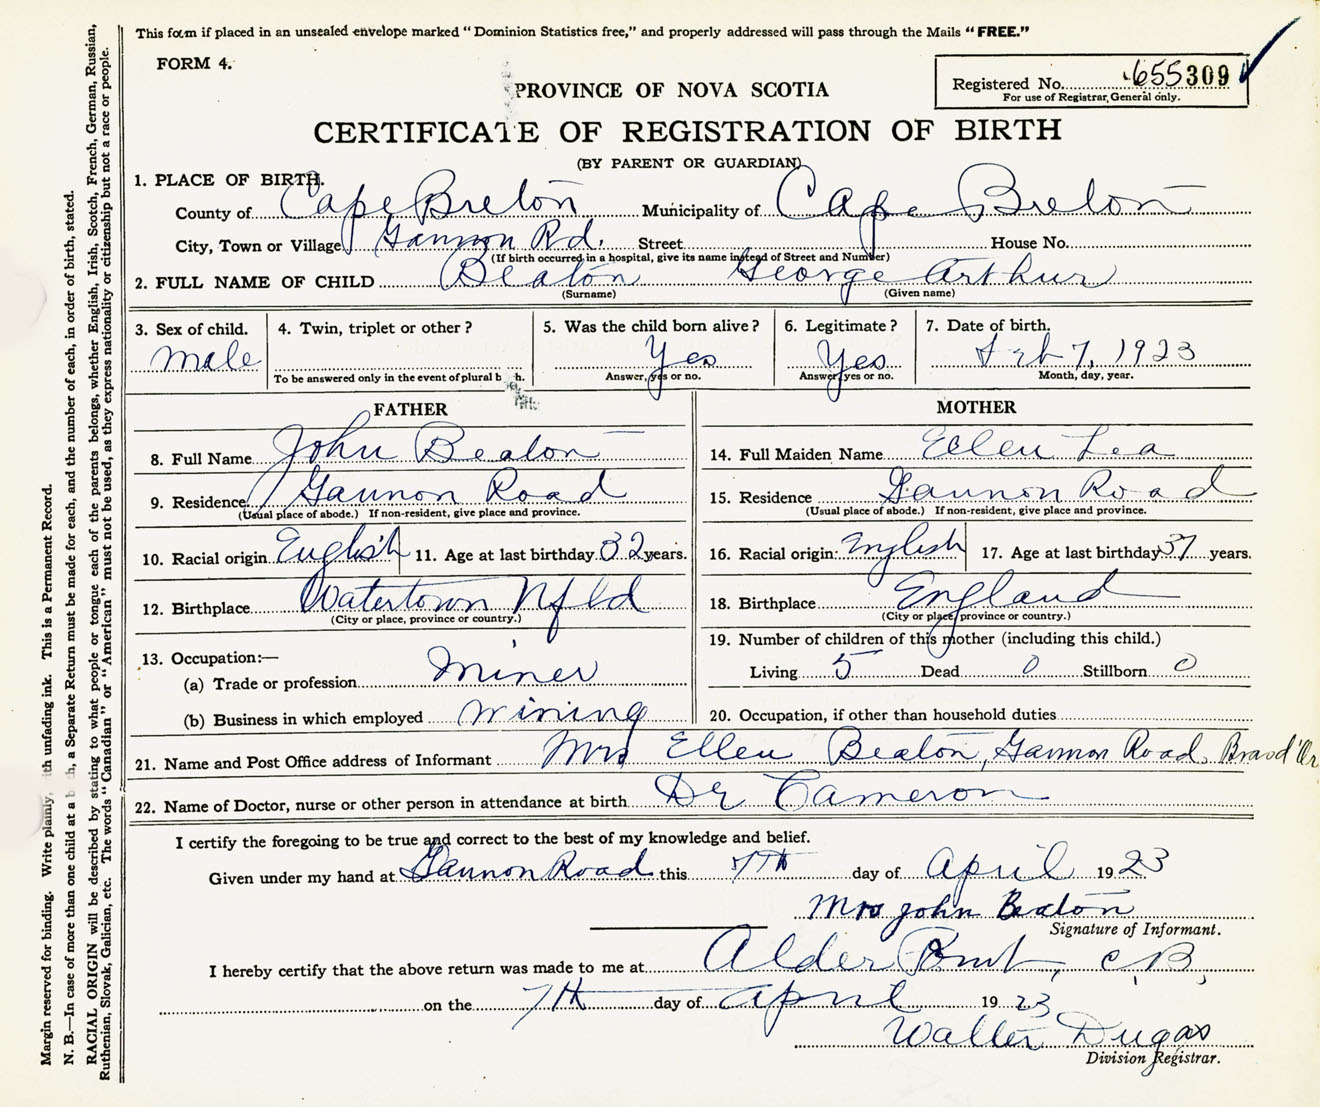 This form if placed in an unsealed envelope marked "Dominion Statistics free," and properly addressed will pass through the Mails "FREE."
FORM 4.
Registered No. 655309
For use of Registrar General only.
PROVINCE OF NOVA SCOTIA
CERTIFICATE OF REGISTRATION OF BIRTH
(BY PARENT OR GUARDIAN)
1. PLACE OF BIRTH.
County of Cape Breton Municipality of Cape Breton
City, Town or Village Gannon Rd. Street House No.
(If birth occurred in a hospital, give its name instead of Street and Number)
2. FULL NAME OF CHILD Beaton George Arthur
(Surname) (Given name)
3. Sex of child. 4. Twin, triplet or other? 5. Was the child born alive? 6. Legitimate? 7. Date of birth.
male Yes Yes Feb 7, 1923
To be answered only in the event of plural b h. Answer, yes or no. Answer, yes or no. Month, day, year.
FATHER
8. Full Name John Beaton
9. Residence Gannon Road
(Usual place of abode.) If non-resident, give place and province.
10. Racial origin English 11. Age at last birthday 32 years.
12. Birthplace Watertown Nfld
(City or place, province or country.)
13. Occupation:—
(a) Trade or profession Miner
(b) Business in which employed Mining
MOTHER
14. Full Maiden Name Ellen Lea
15. Residence Gannon Road
(Usual place of abode.) If non-resident, give place and province.
16. Racial origin: English 17. Age at last birthday 37 years.
18. Birthplace England
(City or place, province or country.)
19. Number of children of this mother (including this child.)
Living 5 Dead 0 Stillborn 0
20. Occupation, if other than household duties
21. Name and Post Office address of Informant Mrs Ellen Beaton, Gannon Road, Brasd'Or
22. Name of Doctor, nurse or other person in attendance at birth Dr Cameron
I certify the foregoing to be true and correct to the best of my knowledge and belief.
Given under my hand at Gannon Road this 7th day of April 1923
Mrs John Beaton
Signature of Informant.
I hereby certify that the above return was made to me at Alder Point, C.B,
on the 7th day of April 1923
Walter Dugas
Division Registrar.
Margin reserved for binding. Write plainly, ith unfading ink. This is a Permanent Record.
N. B.—In case of more than one child at a b h, a Separate Return must be made for each, and the number of each, in order of birth, stated.
RACIAL ORIGIN will be described by stating to what people or tongue each of the parents belongs, whether English, Irish, Scotch, French, German, Russian,
Ruthenian, Slovak, Galician, etc. The words "Canadian" or "American" must not be used, as they express nationality or citizenship but not a race or people.